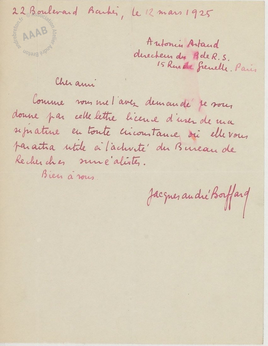 22 Boulevard Barbès, le 12 mars 1925
AAAB
Antonin Artaud
directeur du B de R.S.
15 Rue de Grenelle, Paris
Cher ami
Comme vous me l'avez demandé je vous
donne par cette lettre licence d'user de ma
signature en toute circonstance où elle vous
paraîtra utile à l'activité du Bureau de
Recherches surréalistes.
Bien à vous
Jacques André Boiffard